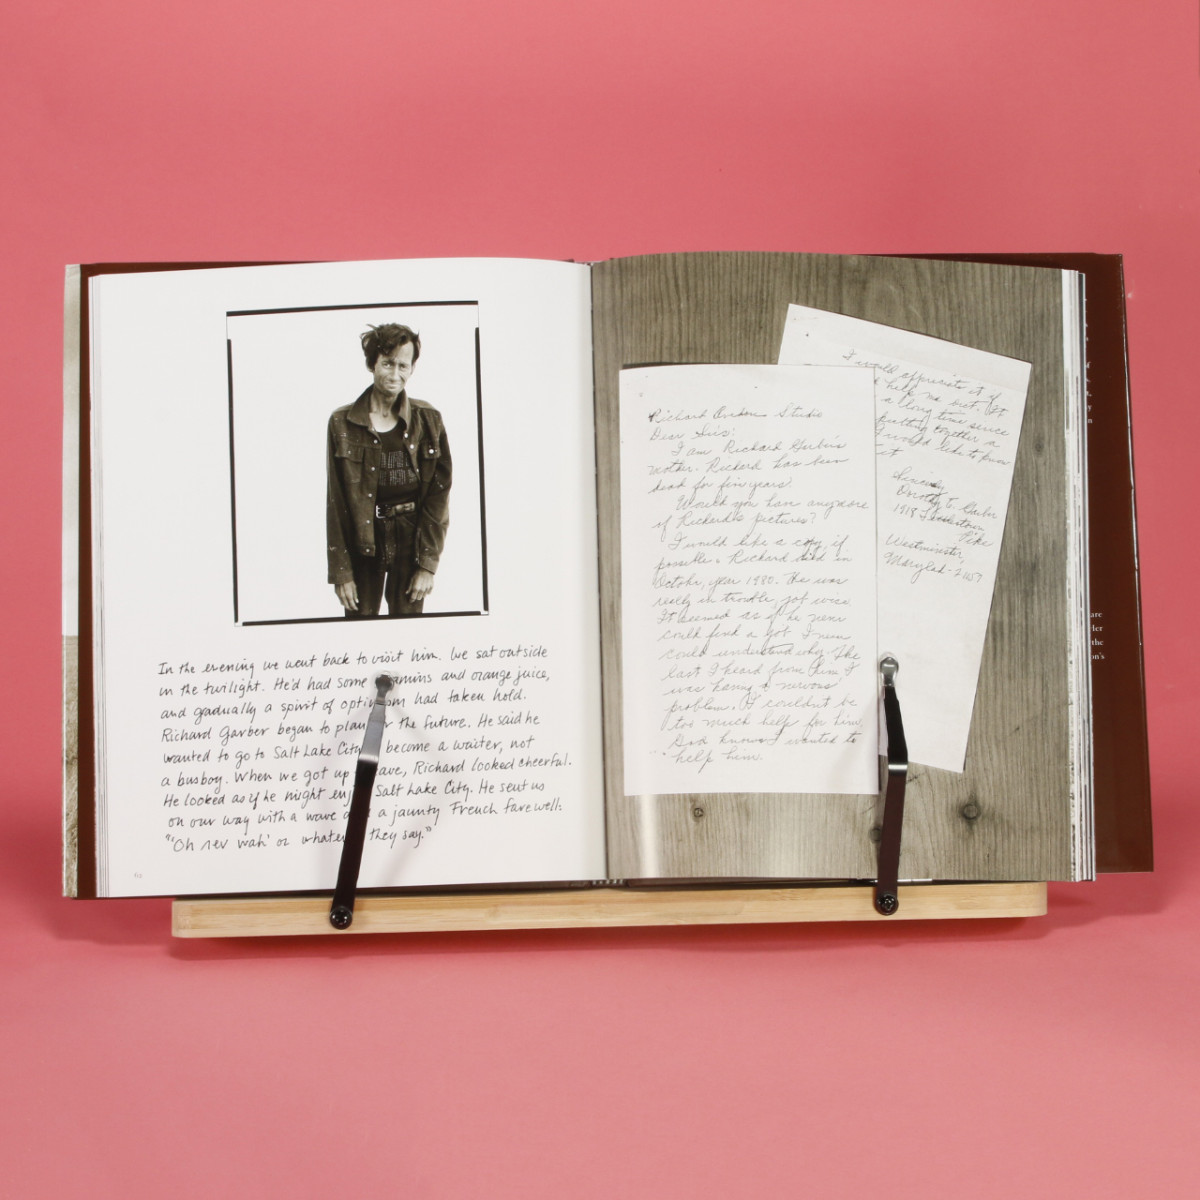 In the evening we went back to visit him. We sat outside
in the twilight. He'd had some vitamins and orange juice,
and gradually a spirit of optimism had taken hold.
Richard Garber began to plan for the future. He said he
wanted to go to Salt Lake City become a waiter, not
a busboy. When we got up leave, Richard looked cheerful.
He looked as if he might enjoy Salt Lake City. He sent us
on our way with a wave and a jaunty French farewell:
"'Oh rev wah' or whatever they say."
Richard Avedon Studio
Dear Sirs:
I am Richard Garber's
mother. Richard has been
dead for five years.
Would you have anymore
of Richard's pictures?
I would like a copy if
possible. Richard died in
October, year 1980. He was
really in trouble, job wise.
It seemed as if he never
could find a job I never
could understand why. The
last I heard from him I
was having a nervous
problem. I couldn't be
too much help for him.
God knows I wanted to
help him.
I would appreciate it if
help me out. It
a long time since
putting together a
I would like to know
it
Sincerely
Dorothy E. Garber
1918
Pike
Westminister,
Maryland - 21157
are
ller
the
on's